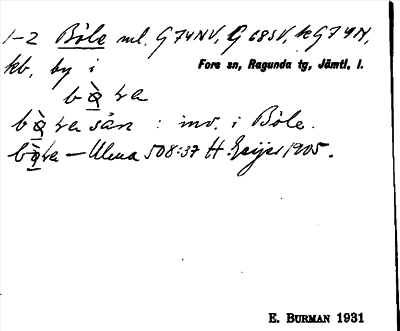 1-2 Böle ml. G 74 NV, G 68 SV, kG 74 N,
kb, by i Fors sn, Ragunda tg, Jämtl. l.
bø̀ la
bø̀ la sån : inv. i Böle.
bø̀ la — Ulma 508:37 H. Geijer 1905.
E. BURMAN 1931